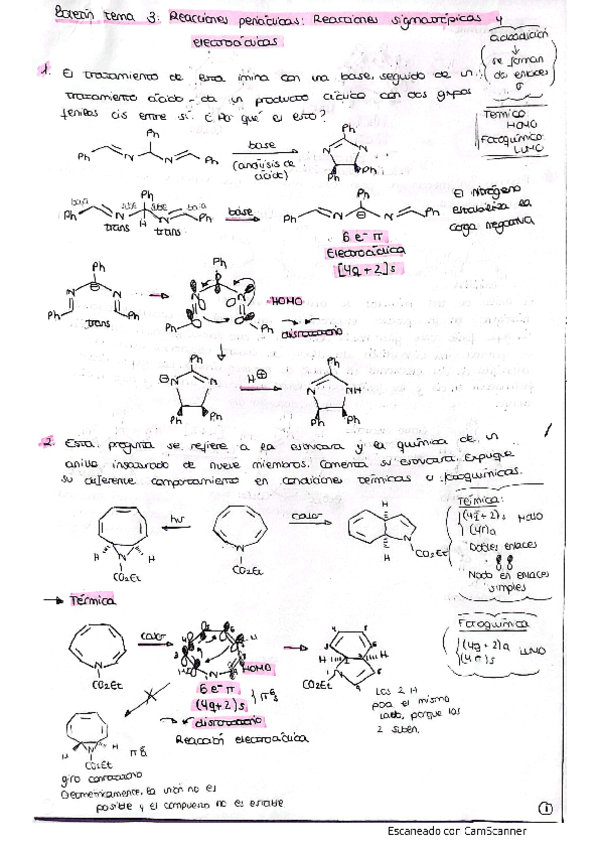 Boletín tema 3: Reacciones pericíclicas: Reacciones sigmatrópicas y
electrocíclicas
Cicloadición
se forman
dos enlaces
σ
Térmico
HOMO
Fotoquímico
LUMO
1. El tratamiento de esta imina con una base, seguido de un
tratamiento ácido, da un producto cíclico con dos grupos
fenilos cis entre sí. ¿Por qué es esto?
Ph
Ph
Ph
base
(análisis de
ácido)
Ph
N
N
Ph
Ph
baja
sube
Ph
sube
baja
Ph
N
H
N
Ph
trans
trans
base
Ph
Ph
N
N
Ph
6 e- π
Electrocíclica
[4q+2]s
El Nitrógeno
estabiliza la
carga negativa
Ph
N
N
Ph
Ph
trans
Ph
N
N
Ph
Ph
HOMO
disrotatorio
Ph
N
N
Ph
Ph
H⊕
Ph
N
NH
Ph
Ph
2. Esta pregunta se refiere a la estructura y la química de un
anillo insaturado de nueve miembros. Comenta su estructura. Explique
su diferente comportamiento en condiciones térmicas o fotoquímicas.
H
N
H
CO2Et
hν
N
CO2Et
calor
H
N
H
CO2Et
Térmica:
(4q+2)s HOMO
(4r)a
Dobles enlaces
Nodo en enlaces
simples
→ Térmica
N
CO2Et
calor
HOMO
6 e- π
(4q+2)s
disrotatorio
Reacción electrocíclica
H
H
CO2Et
N
Los 2 H
por el mismo
lado, porque los
2 suben.
Fotoquímica
(4q+2)a
(4r)s
LUMO
H
N
H
CO2Et
giro conrotatorio
Geométricamente, la unión no es
posible y el compuesto no es estable
1
Escaneado con CamScanner